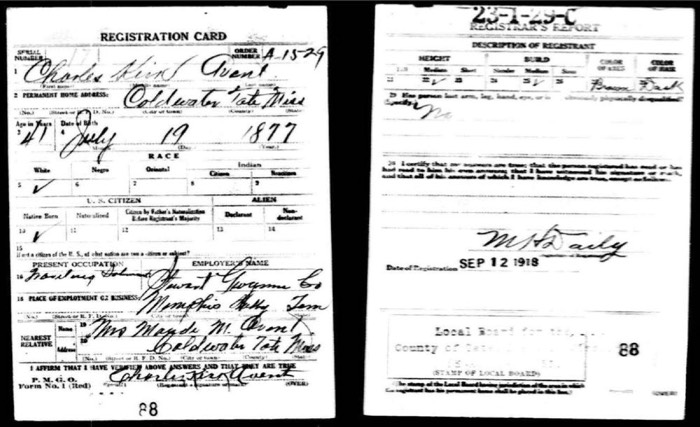 REGISTRATION CARD
SERIAL NUMBER
ORDER NUMBER A-1529
1 Charles Avent
2 PERMANENT HOME ADDRESS:
Coldwater Tate Miss
(No.) (Street or R. F. D. No.) (City or town) (County) (State)
Age in Years Date of Birth
3 41 4 July 19 1877
(Month.) (Day.) (Year.)
RACE
White Negro Oriental Indian
Citizen Noncitizen
5 ✓ 6 7 8 9
U. S. CITIZEN ALIEN
Native Born Naturalized Citizen by Father's Naturalization Before Registrant's Majority Declarant Non-declarant
10 ✓ 11 12 13 14
15
If not a citizen of the U. S., of what nation are you a citizen or subject?
PRESENT OCCUPATION EMPLOYER'S NAME
16 Traveling Salesman Stewart Gwynne Co
18 PLACE OF EMPLOYMENT OR BUSINESS:
Memphis Tenn
(No.) (Street or R. F. D. No.) (City or town) (County) (State)
NEAREST RELATIVE Name 19 Mrs Maude M. Avent
Address 20 Coldwater Tate Miss
(No.) (Street or R. F. D. No.) (City or town) (County) (State)
I AFFIRM THAT I HAVE VERIFIED ABOVE ANSWERS AND THAT THEY ARE TRUE
P. M. G. O.
Form No. 1 (Red) Charles Avent (OVER)
88
23-1-29-C
REGISTRAR'S REPORT
DESCRIPTION OF REGISTRANT
HEIGHT BUILD COLOR OF EYES COLOR OF HAIR
Tall Medium Short Slender Medium Stout
21 22 ✓ 23 24 25 ✓ 26 27 Brown 28 Dark
29 Has person lost arm, leg, hand, eye, or is obviously physically disqualified?
(Specify.) No
30 I certify that my answers are true; that the person registered has read or has
had read to him his own answers; that I have witnessed his signature or mark,
and that all of his answers of which I have knowledge are true, except as follows:
M H Daily
(Signature of Registrar)
Date of Registration SEP 12 1918
Local Board for the
County of Tate
88
(STAMP OF LOCAL BOARD)
(The stamp of the Local Board having jurisdiction of the area in which
the registrant has his permanent home shall be placed in this box.)